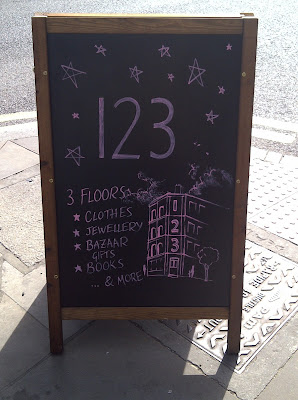 123
3 FLOORS
CLOTHES
JEWELLERY
BAZAAR
GIFTS
BOOKS
... & MORE
1
2
3